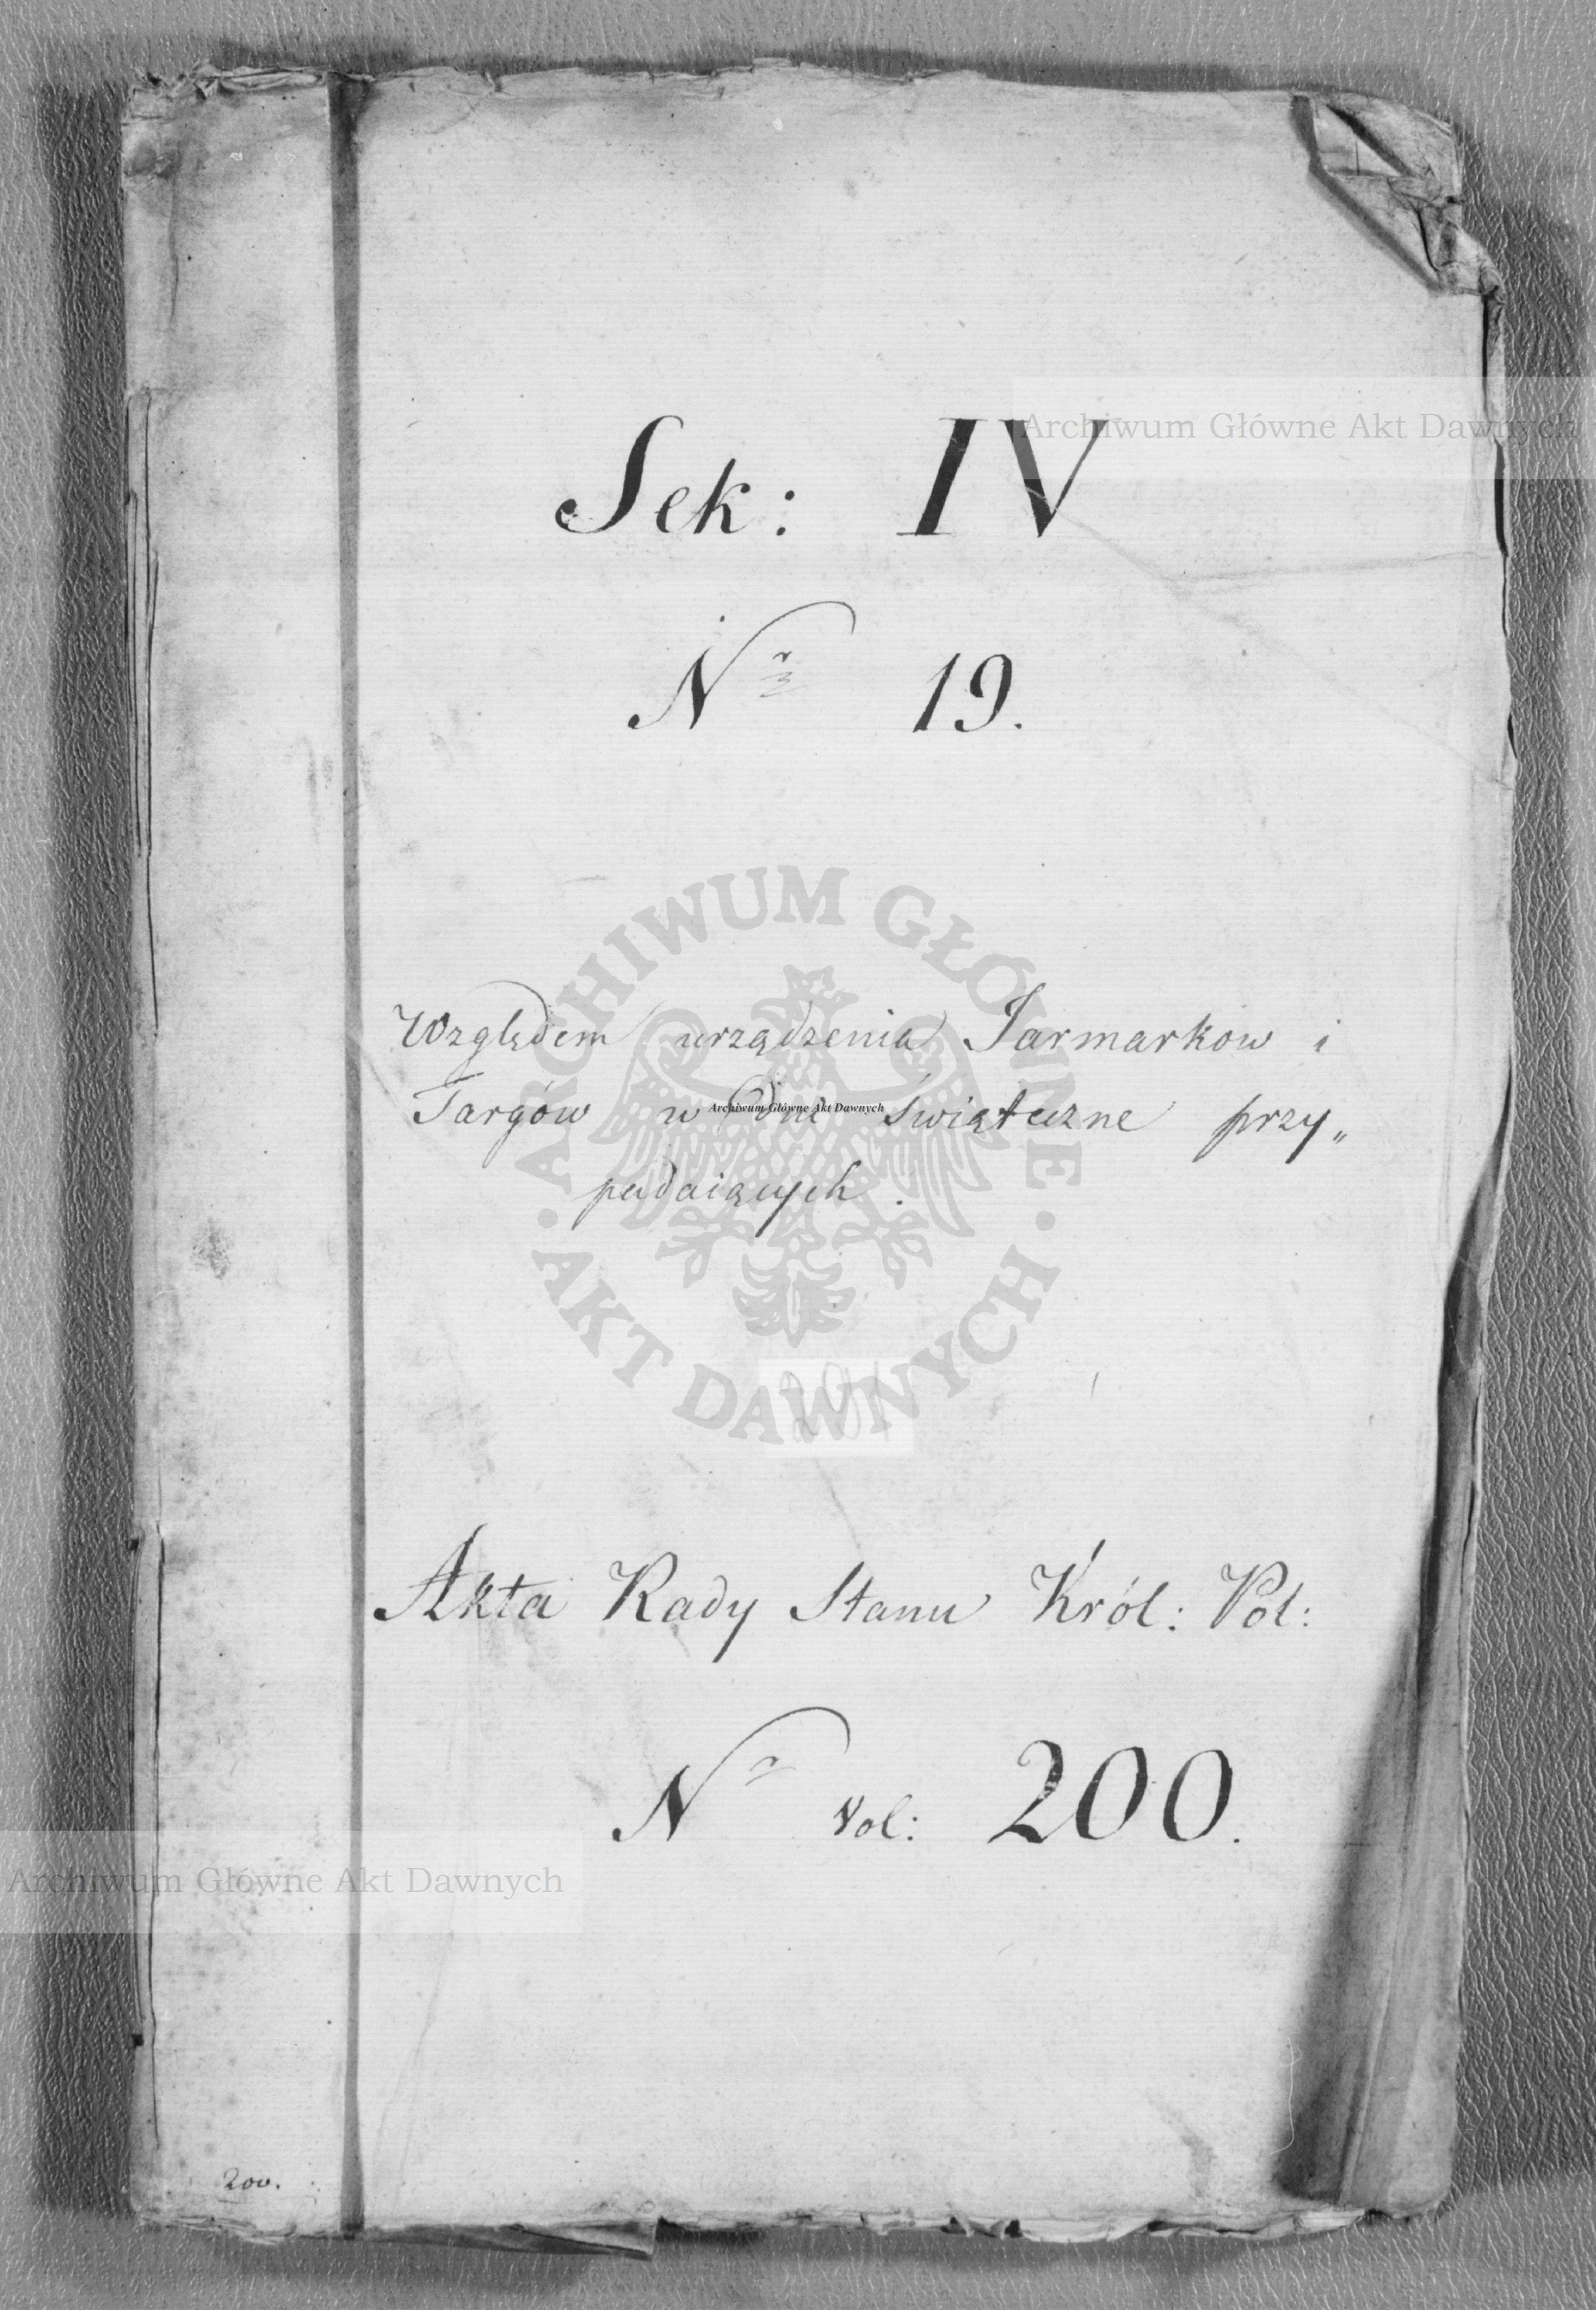 Sek: IV
Archiwum Główne Akt Dawnych
Nr 19.
ARCHIWUM GŁÓWNE
Względem urządzenia Jarmarkow i
Targów w dni świąteczne przy„
Archiwum Główne Akt Dawnych
padaiących.
AKT DAWNYCH
201
Akta Rady Stanu Król: Pol:
Nr Vol: 200.
Archiwum Główne Akt Dawnych
200.